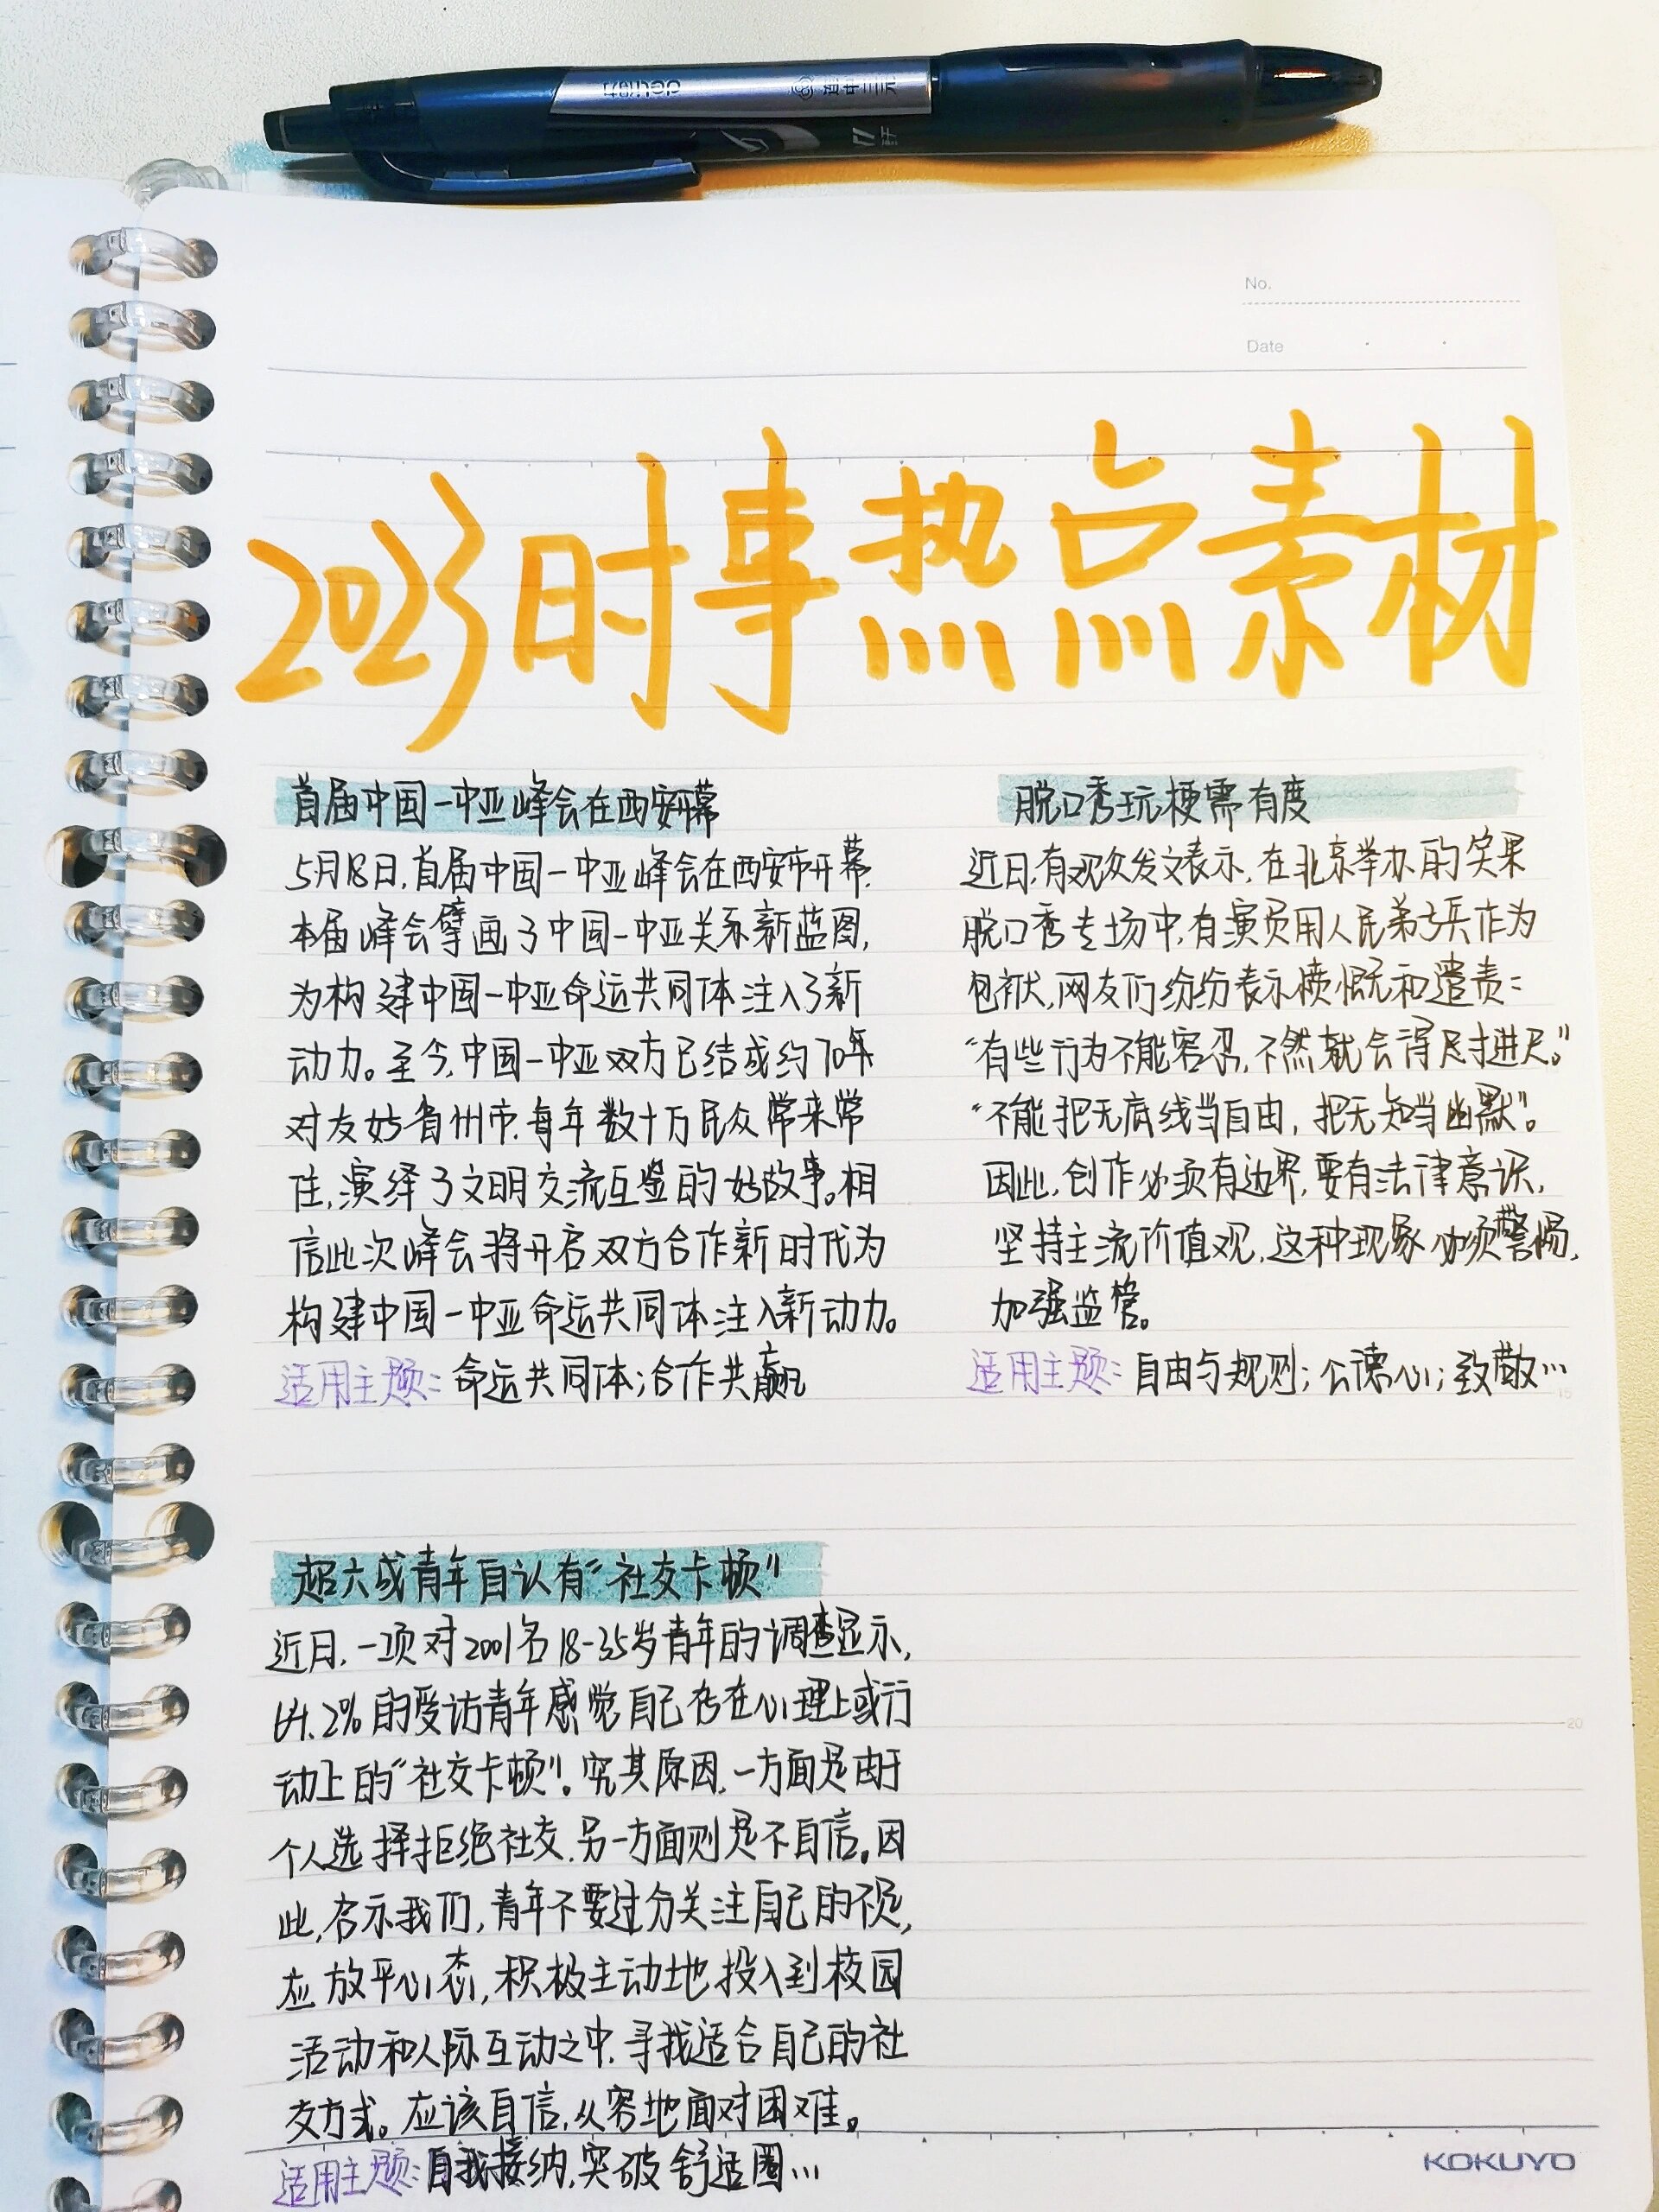 No.
Date
2023时事热点素材
首届中国-中亚峰会在西安开幕
5月18日,首届中国-中亚峰会在西安市开幕.
本届峰会擘画了中国-中亚关系新蓝图,
为构建中国-中亚命运共同体注入了新
动力。至今,中国-中亚双方已结成约70年
对友好省州市,每年数十万民众常来常
往,演绎了文明交流互鉴的好故事。相
信此次峰会将开启双方合作新时代为
构建中国-中亚命运共同体注入新动力。
适用主题:命运共同体;合作共赢
脱口秀玩梗需有度
近日,有观众发文表示,在北京举办的笑果
脱口秀专场中,有演员用人民弟子兵作为
包袱,网友们纷纷表示愤慨和谴责:
“有些行为不能容忍,不然就会得尺寸进尺。”
“不能把无底线当自由,把无知当幽默”。
因此,创作必须有边界,要有法律意识,
坚持主流价值观,这种现象必须警惕,
加强监管。
适用主题:自由与规则;公德心;致敬…
15
超六成青年自认有“社交卡顿”
近日,一项对2001名18-35岁青年的调查显示,
64.2%的受访青年感觉自己存在心理上或行
动上的“社交卡顿”。究其原因,一方面是由于
个人选择拒绝社交,另一方面则是不自信。因
此,启示我们,青年不要过分关注自己的不足,
应放平心态,积极主动地投入到校园
活动和人际互动之中,寻找适合自己的社
交方式。应该自信,从容地面对困难。
适用主题:自我接纳,突破舒适圈…
20
KOKUYO